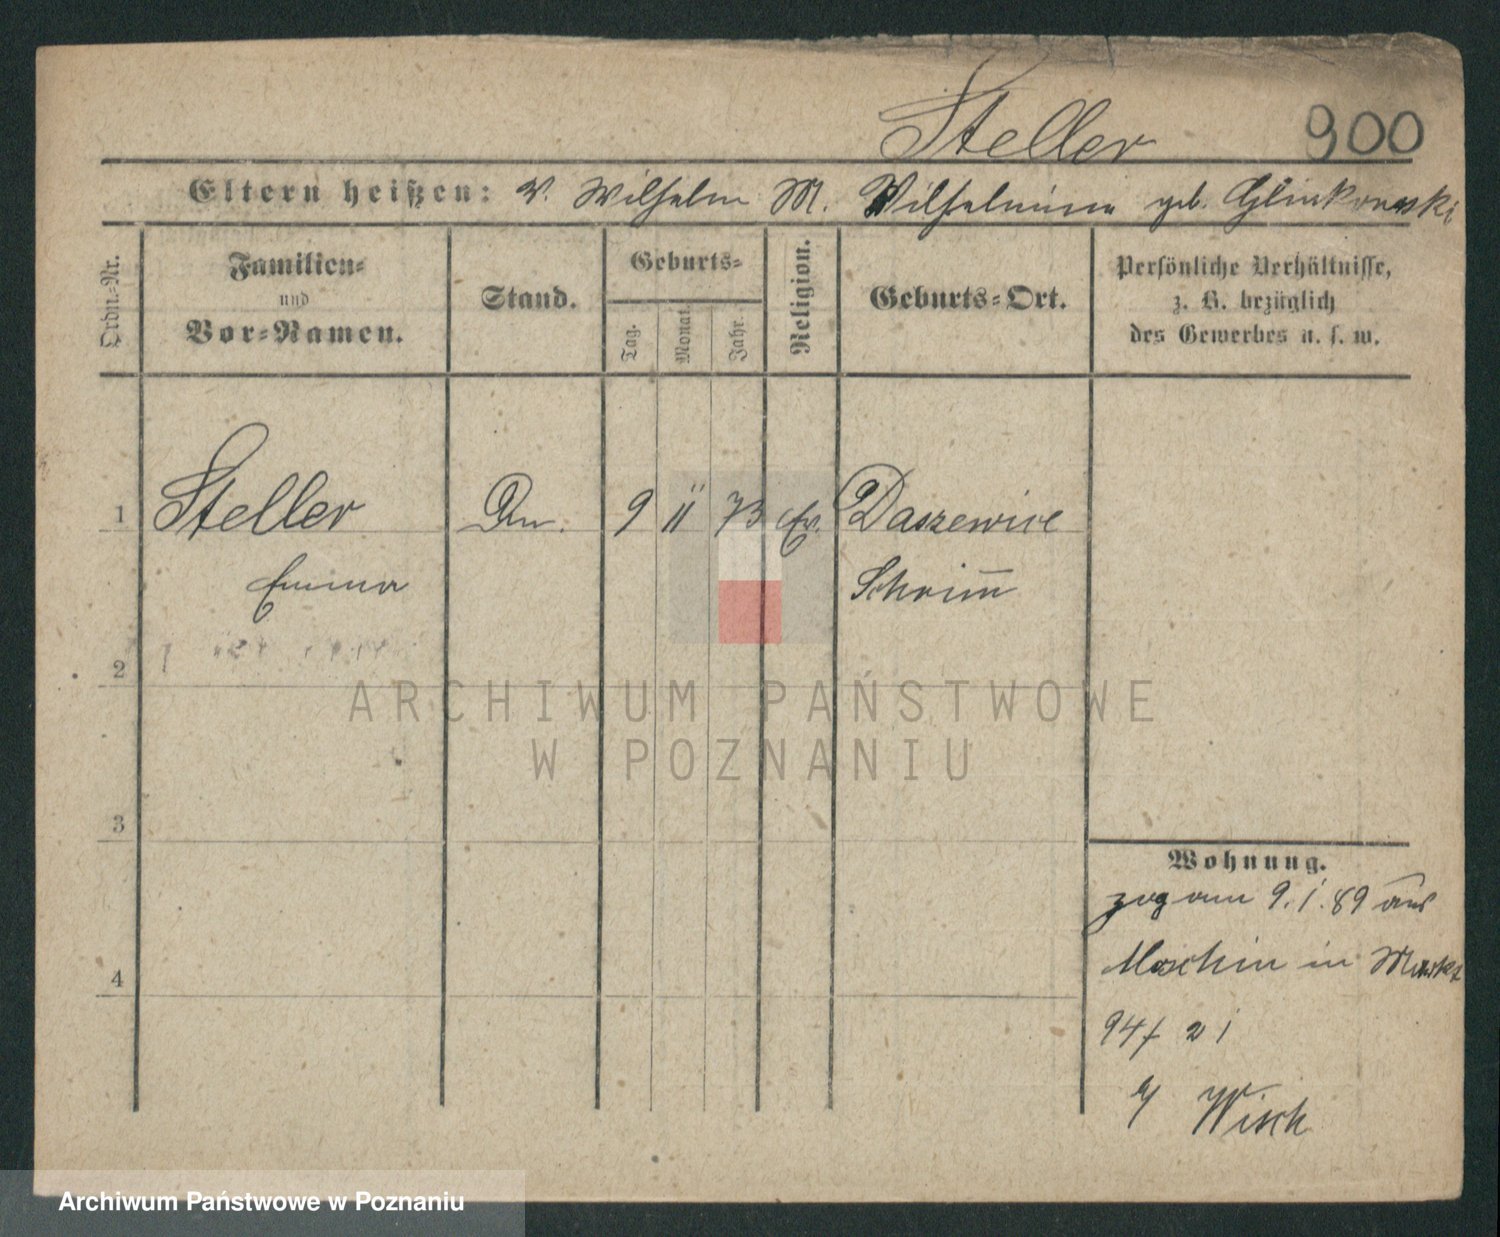 Steller 900
Eltern heißen: V. Wilhelm M. Wilhelmine geb. Glinkowski
Ordn.-Nr.
Familien-
und
Vor-Namen.
Stand.
Geburts-
Tag.
Monat.
Jahr.
Religion.
Geburts-Ort.
Persönliche Verhältnisse,
z. B. bezüglich
des Gewerbes u. s. w.
1 Steller 9 11 73 Ev. Daszewice
Emma Schrimm
2
3
4
Wohnung.
zog am 9.1.89 aus
Moschin in Markt
94/ 21
Wisch
ARCHIWUM PAŃSTWOWE
W POZNANIU
Archiwum Państwowe w Poznaniu